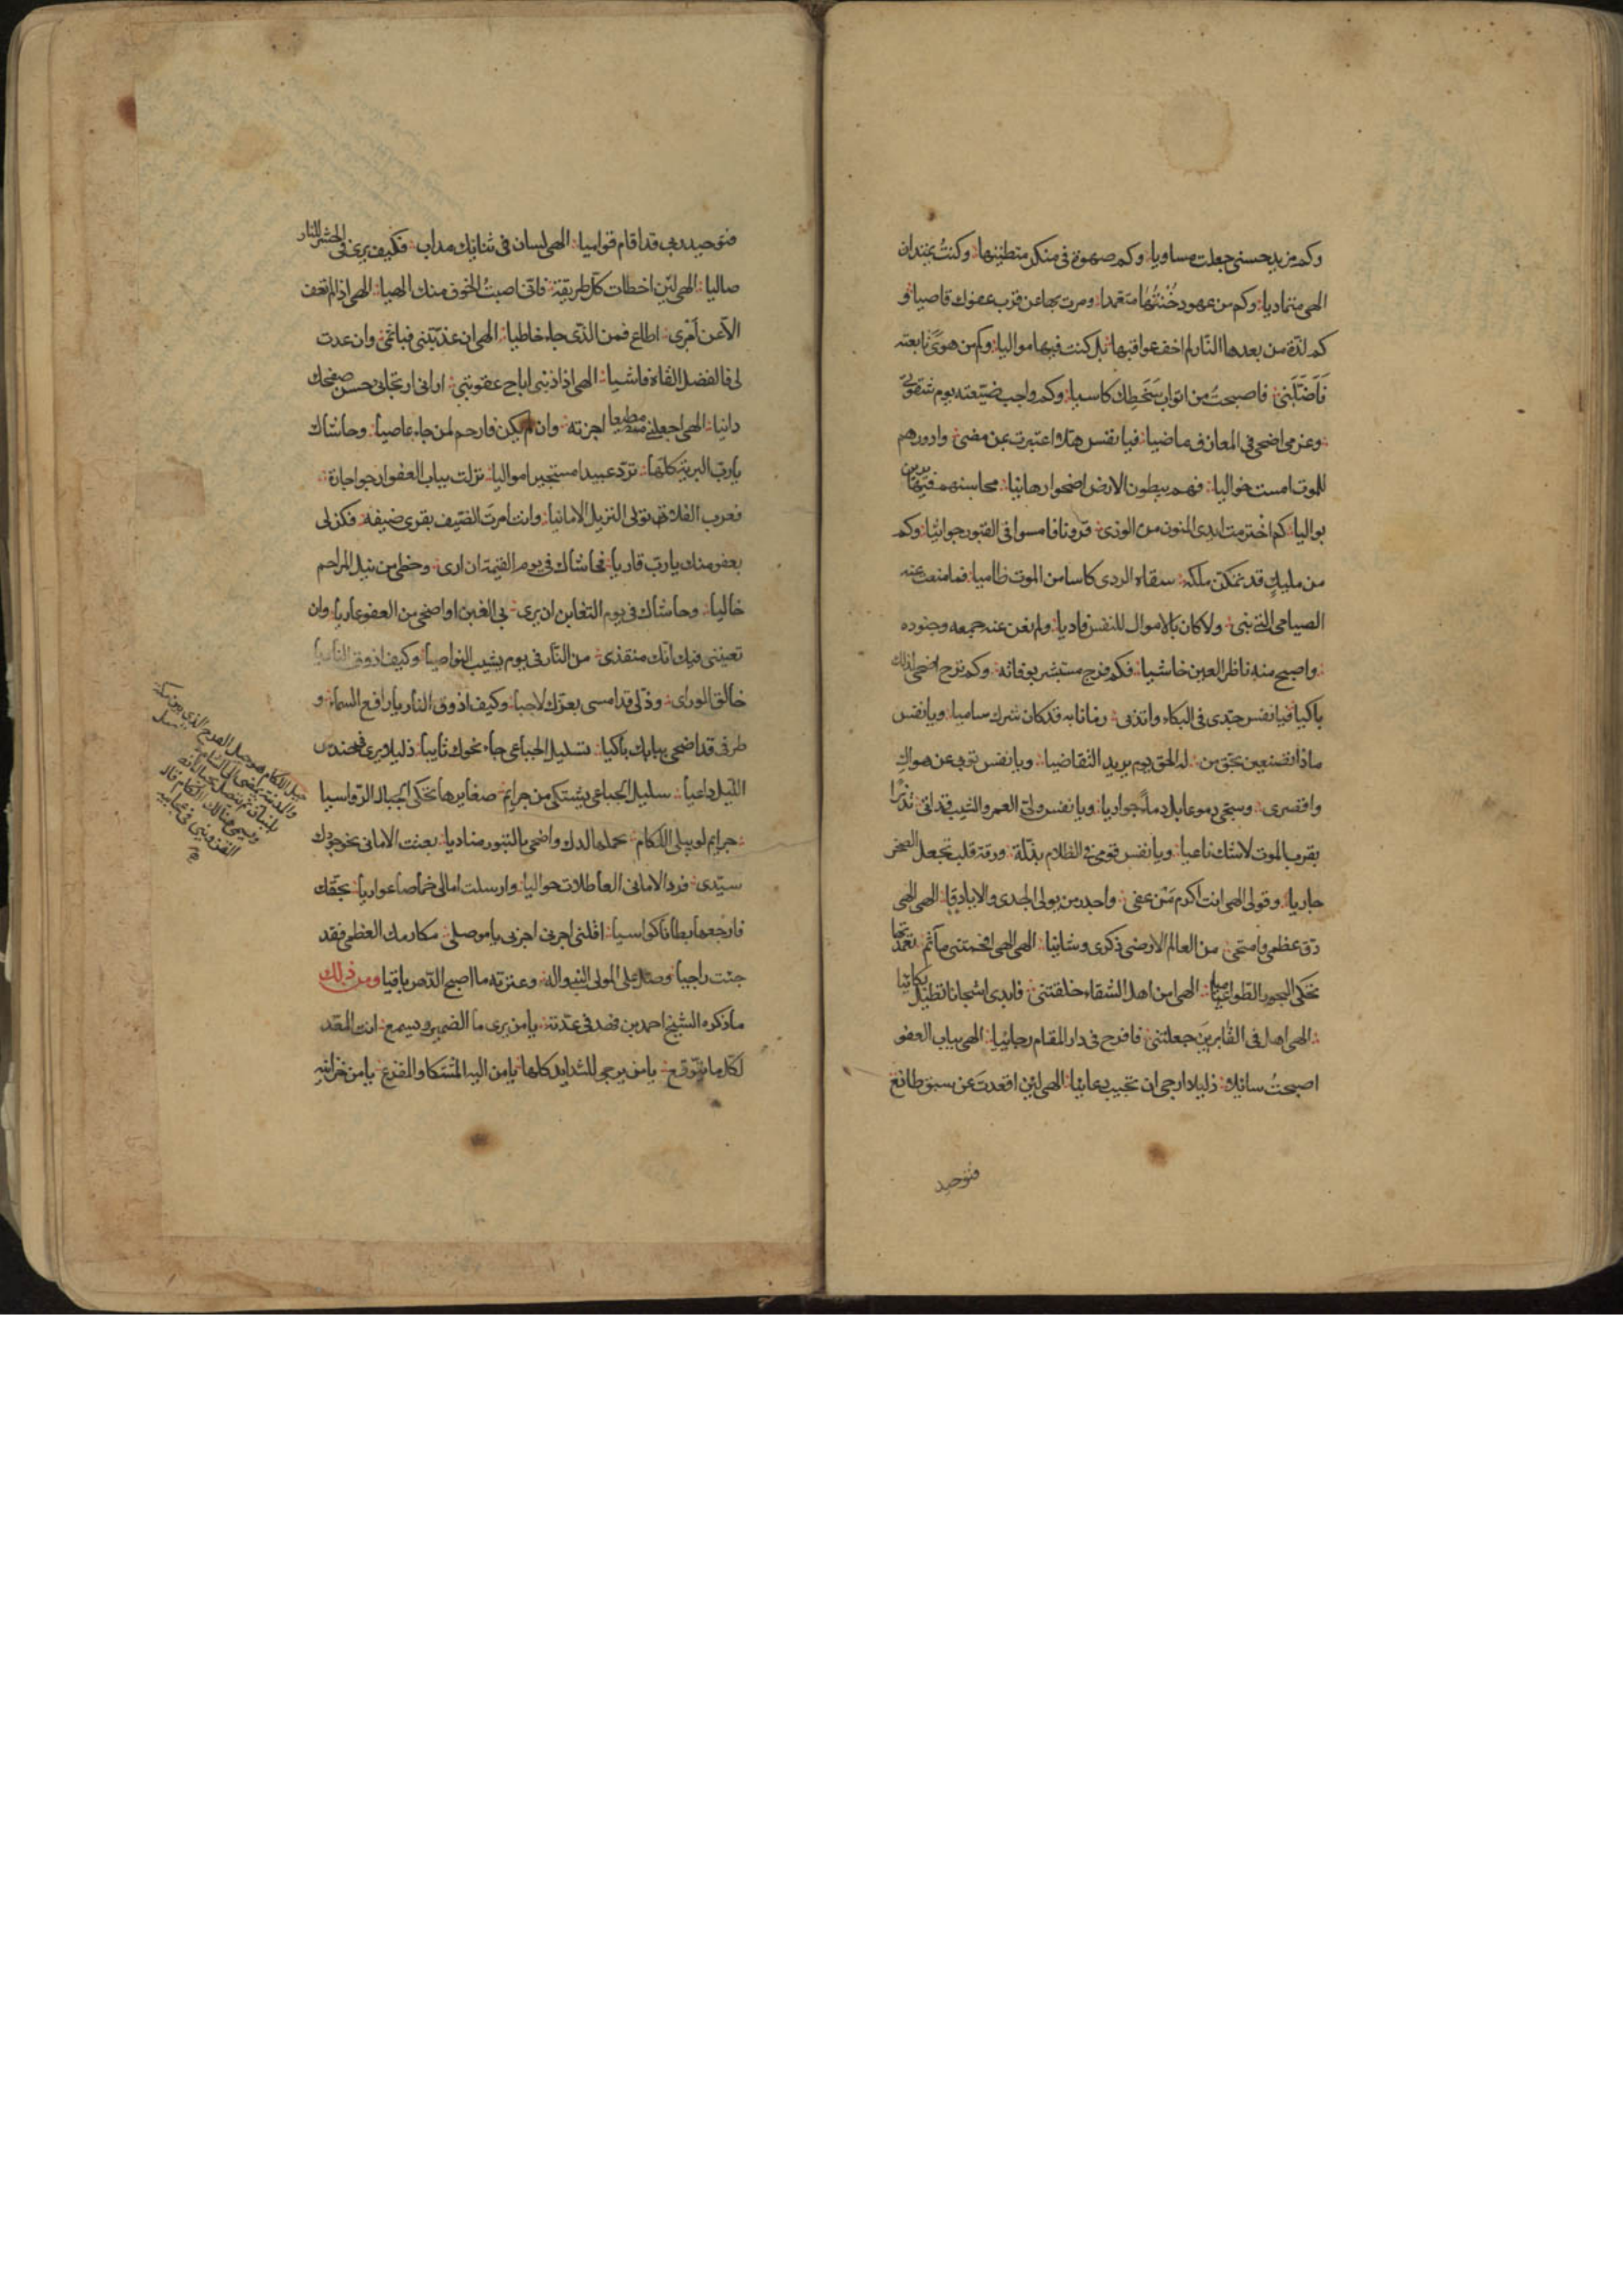 وكم من يد حسنى جعلت مساويا وكم صهوة في منكر متطيتها وكنت بميدان
الهي متماديا وكم من عهود خنتها متعمدا ومرت بها عن قرب عفوك قاصيا و
كم لذة من بعدها النار لم اخف عواقبها بل كنت فيها مواليا وكم من هوى تابعته
فاضلني فاصبحت من اثواب سخطك كاسيا وكم واجب ضيعته يوم شقوتي
وعزمي اضحى في المعازف ماضيا فيا نفس هلا اعتبرت بمن مضى وادورهم
للموت امست خواليا فهم ببطون الارض اضحوا رهائنا محاسنهم فيها
بواليا كم اخترمت ايدي المنون من الورى قرونا فامسوا في القبور جواثيا وكم
من مليك قد تمكن ملكه سقاه الردى كاسا من الموت ظاميا فما منعت عنه
الصياصي التي بنى ولا كان بالاموال للنفس فاديا ولم تغن عنه جمعه وجنوده
واصبح منه ناظر العين خاشيا فكم فرح مستبشر بوفاته وكم ترح اضحى لذلك
باكيا فيا نفس جدي في البكاء واندبي زمانا به قد كان شرك ساميا ويا نفس
ماذا تصنعين بحق من له الحق يوم يريد التقاضيا ويا نفس توبي عن هواك
واقصرى وسحي دموعا بل دماء جواريا ويا نفس ولى العمر والشيب قد اتى نذيرا
بقرب الموت لا شك ناعيا ويا نفس قومي في الظلام بذلة ورقة قلب تجعل الصخر
جاريا وقولي الهي انت اكرم من عفى واجدر من يولي الجدى والاياديا الهي الهي
دق عظمي وامتحى من العالم الارضي ذكرى وشانيا الهي الهي افحمتني مآثم تعمدتها
تحكي البحور الطواميا الهي امن اهل الشقاء خلقتني فابدى اشجانا تطيل بكائيا
الهي اهل في الفايزين جعلتني فافرح في دار المقام رجائيا الهي بباب العفو
اصبحت سائلا ذليلا ارجي ان تجيب دعائيا الهي لئن اقعدت عن سبق طائع
فتوحيد
فتوحيد ربي قد اقام قواميا الهي لسان في ثنائك مداب فكيف يرى في الحشر للنار
صاليا الهي لئن اخطات كل طريقة فاني اصبت الخوف منك الهيا الهي اذا لم تعف
الا عن امرئ اطاع فمن الذي جاء خاطيا الهي ان عذبتني فبما ثمي وان عدت
لي فالفضل القاه فاشيا الهي اذا ذنبي اباح عقوبتي اراني ارتجائي حسن صفحك
دانيا الهي اجعلني مطيعا اجزته وان لم يكن فارحم لمن جاء عاصيا وحاشاك
يا رب البرية كلها ترد عبيدا مستجيرا مواليا نزلت بباب العفو ارجو اجازة
فعرب الفلا تولى النزيل الامانيا وانت امرت الضيف يقرى ضيفه فكن لي
بعفو منك يا رب قاريا فحاشاك في يوم القيمة ان ارى وحظي من نيل المراحم
خاليا وحاشاك في يوم التغابن ان يرى بي الغبن او اضحى من العفو عاريا وان
تعينني فيك انك منقذي من النار في يوم يشيب النواصيا وكيف اذوق النار يا
خالق الورى وذلي قد امسى بعزك لاجيا وكيف اذوق النار يا رافع السماء و
طرفي قد اضحى ببابك باكيا تسليل الجباعي جاء نحوك تايبا ذليلا يرى في حندس
الليل داعيا سليل الجباعي يشتكي من جرائم صغايرها تحكي الجبال الرواسيا
جرايم لو يبلى اللكام بحملها لدك واضحى بالثبور مناديا بعثت الاماني نحو جودك
سيدى فرد الاماني العاطلات حواليا وارسلت امالي خماصا عواريا بحقك
فارجعها بطانا كواسيا اقلني اجرني اجزني يا موصلي مكارمك العظمى فقد
جئت راجيا وصل على المولى النبي واله وعترته ما اصبح الدهر باقيا ومن ذلك
ما ذكره الشيخ احمد بن فهد في عدته يا من يرى ما في الضمير ويسمع انت المعد
لكل ما يتوقع يا من يرجى للشدايد كلها يا من اليه المشتكا والمفزع يا من خزائن
جبل اللكام هو جبل العرج الذي بين مكة
والمدينة يمضي الى الشام
بلبنان ثم يتصل بجبال انطاكية
ويسمى هنالك اللكام قال
القزويني في عجايبه